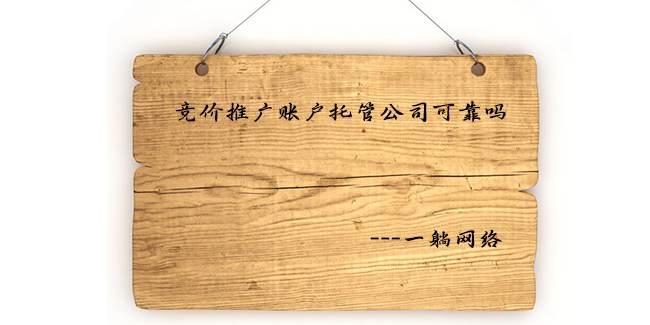 竞价推广账户托管公司可靠吗
---一躺网络